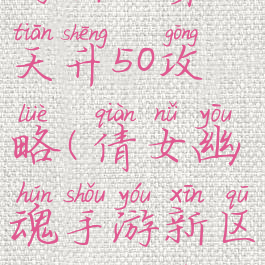 tiān shēng gōng
天升50攻
lüè qiàn nǚ yōu
略(倩女幽
hún shǒu yóu xīn qū
魂手游新区